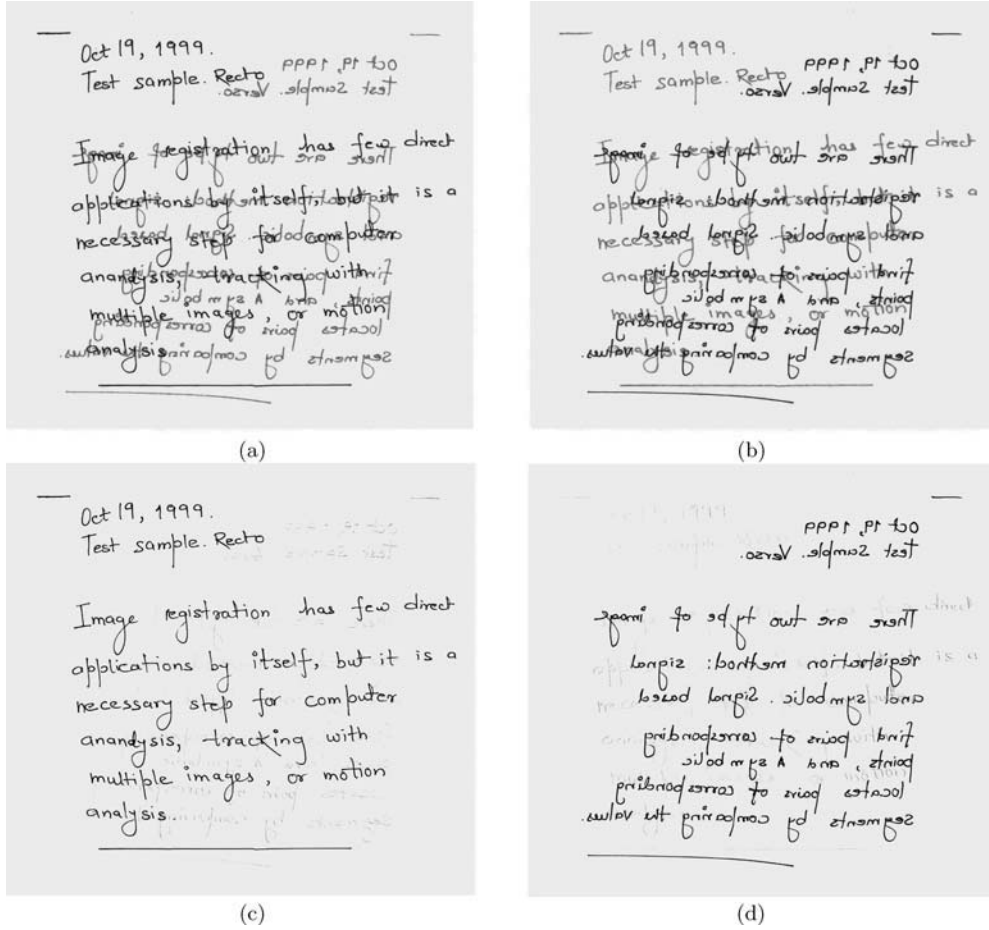 Oct 19, 1999.
Test sample. Recto
oct 19, 1999
Test Sample. Verso.
Image registration has few direct
applications by itself, but it is a
necessary step for computer
anandysis, tracking with
multiple images, or motion
analysis
points, and A symbolic
locates pairs of corresponding
segments by comparing the values.
(a)
Oct 19, 1999.
Test sample. Recto
oct 19, 1999
Test Sample. Verso.
There are two tybe of image
registration method: signal
and symbolic. Signal based
find pairs of corresponding
points, and A symbolic
multiple images, or motion
locates pairs of corresponding
segments by comparing the values.
(b)
Oct 19, 1999.
Test sample. Recto
Image registration has few direct
applications by itself, but it is a
necessary step for computer
anandysis, tracking with
multiple images, or motion
analysis.
(c)
oct 19, 1999
Test Sample. Verso.
There are two tybe of image
registration method: signal
and symbolic. Signal based
find pairs of corresponding
points, and A symbolic
locates pairs of corresponding
segments by comparing the values.
(d)